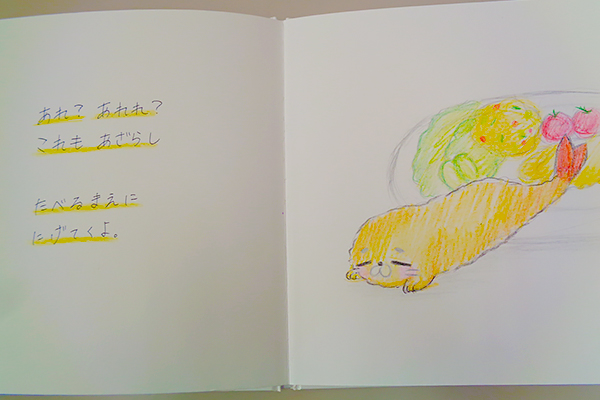 あれ？ あれれ？
これも あざらし
たべるまえに
にげてくよ。